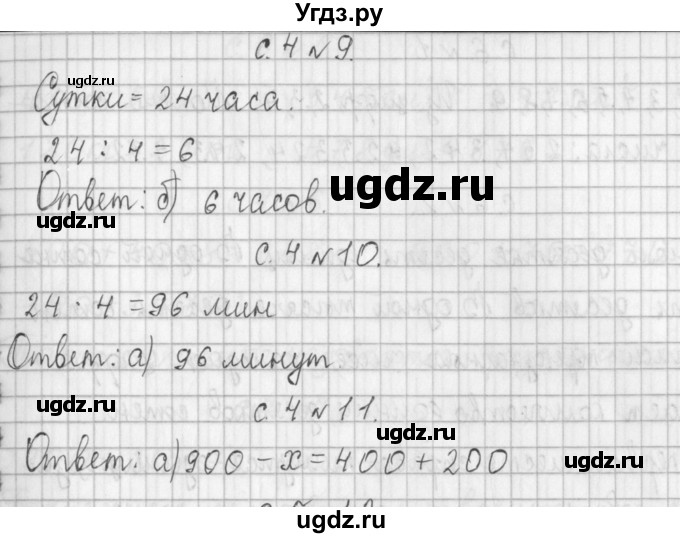 Угдз.ру
с. 4 № 9.
ugdz.ru
ugdz.ru
Сутки = 24 часа.
24 : 4 = 6
ugdz.ru
Ответ: б) 6 часов.
ugdz.ru
с. 4 № 10.
24 · 4 = 96 мин
Ответ: а) 96 минут
ugdz.ru
с. 4 № 11.
ugdz.ru
Ответ: а) 900 - х = 400 + 200
ugdz.ru
ugdz.ru